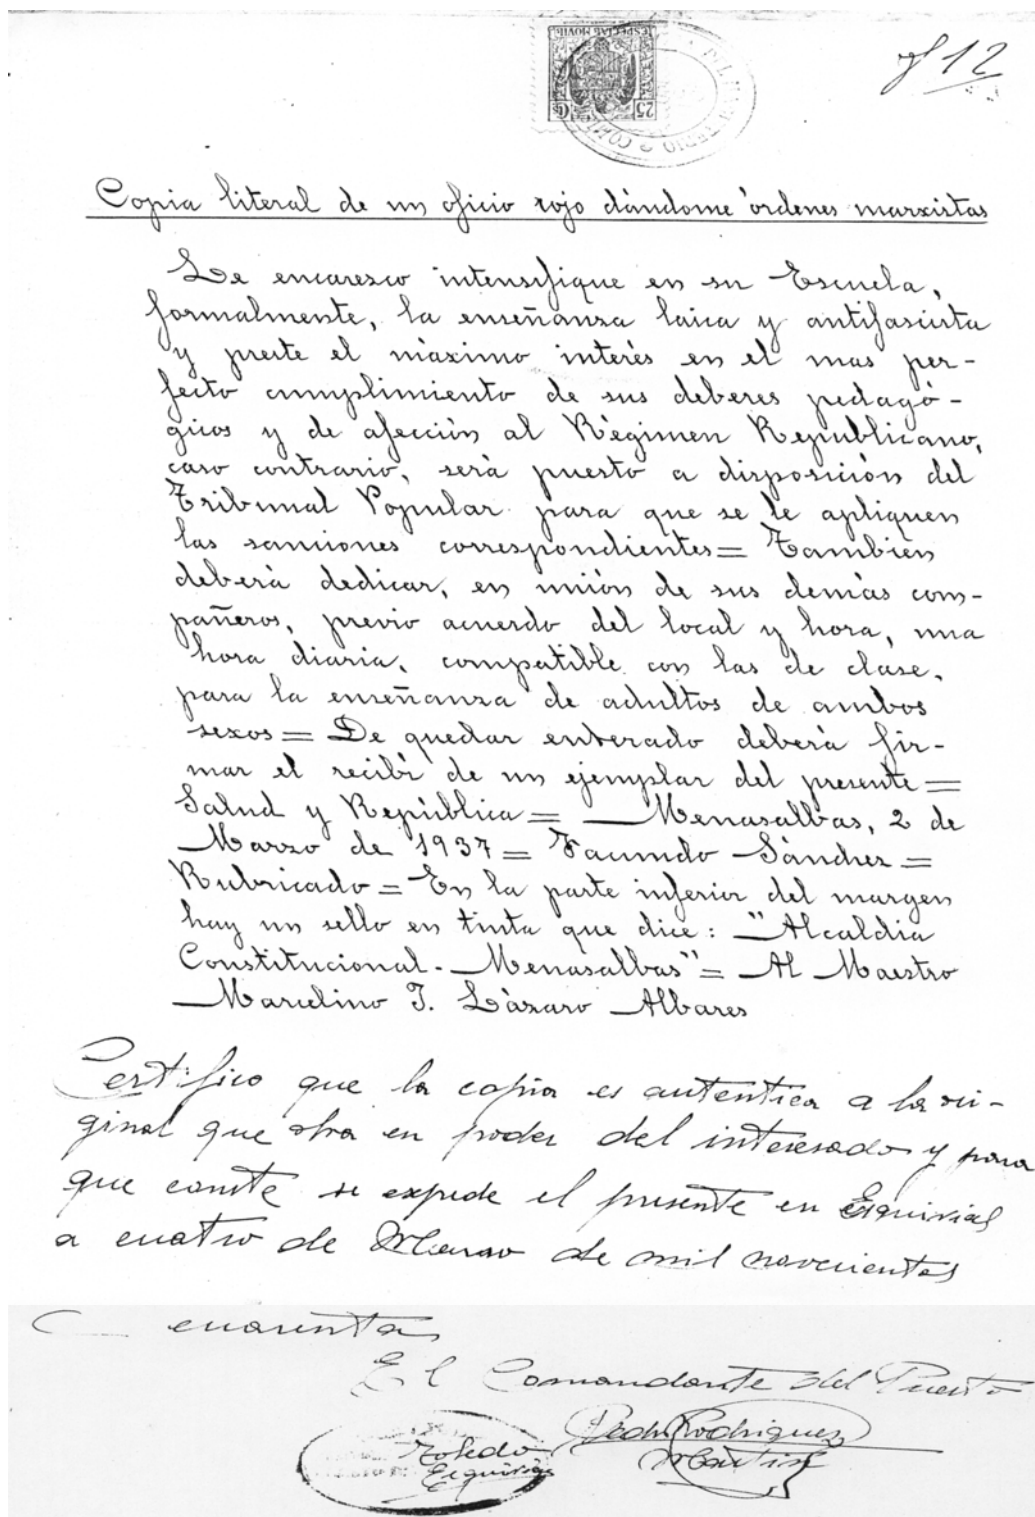 ESPECIAL MOVIL
25 Cs
f 12
Copia literal de un oficio rojo dándome órdenes marxistas
Le encaresco intensifique en su Escuela,
formalmente, la enseñanza laica y antifascista
y preste el máximo interés en el mas per-
fecto cumplimiento de sus deberes pedagó-
gicos y de afección al Régimen Republicano,
caso contrario, será puesto a disposición del
Tribunal Popular para que se le apliquen
las sanciones correspondientes = Tambien
deberá dedicar, en unión de sus demás com-
pañeros, previo acuerdo del local y hora, una
hora diaria, compatible con las de clase,
para la enseñanza de adultos de ambos
sexos = De quedar enterado deberá fir-
mar el recibí de un ejemplar del presente =
Salud y República = Menasalbas, 2 de
Marzo de 1937 = Facundo Sánchez =
Rubricado = En la parte inferior del margen
hay un sello en tinta que dice: "Alcaldia
Constitucional - Menasalbas" = Al Maestro
Marcelino J. Lázaro Albares
Certifico que la copia es autentica a la ori-
ginal que obra en poder del interesado y para
que conste se expede el presente en Esquivias
a cuatro de Marzo de mil novecientos
cuarenta
El Comandante del Puesto
Pedro Rodriguez
Martin
Toledo
Esquivias